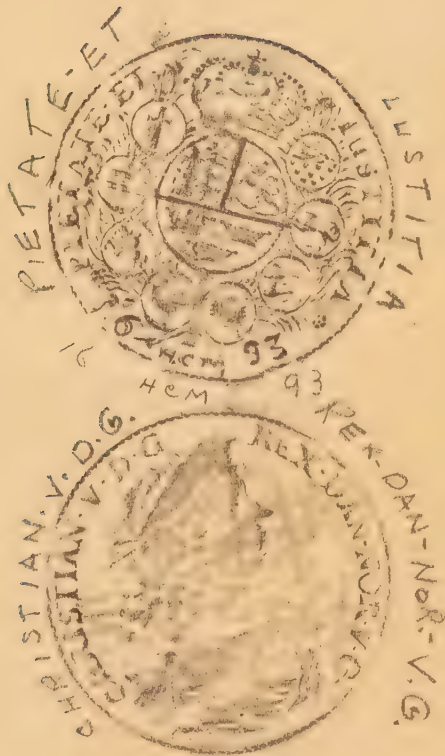 PIETATE·ET
IUSTITIA
PIETATE·ET
IUSTITIA
16 HCM 93
16 HCM 93
CHRISTIAN.V.D.G.
REX-DAN-NOR-V.G.
CHRISTIAN·V·D·G
REX·DAN·NOR·V·G